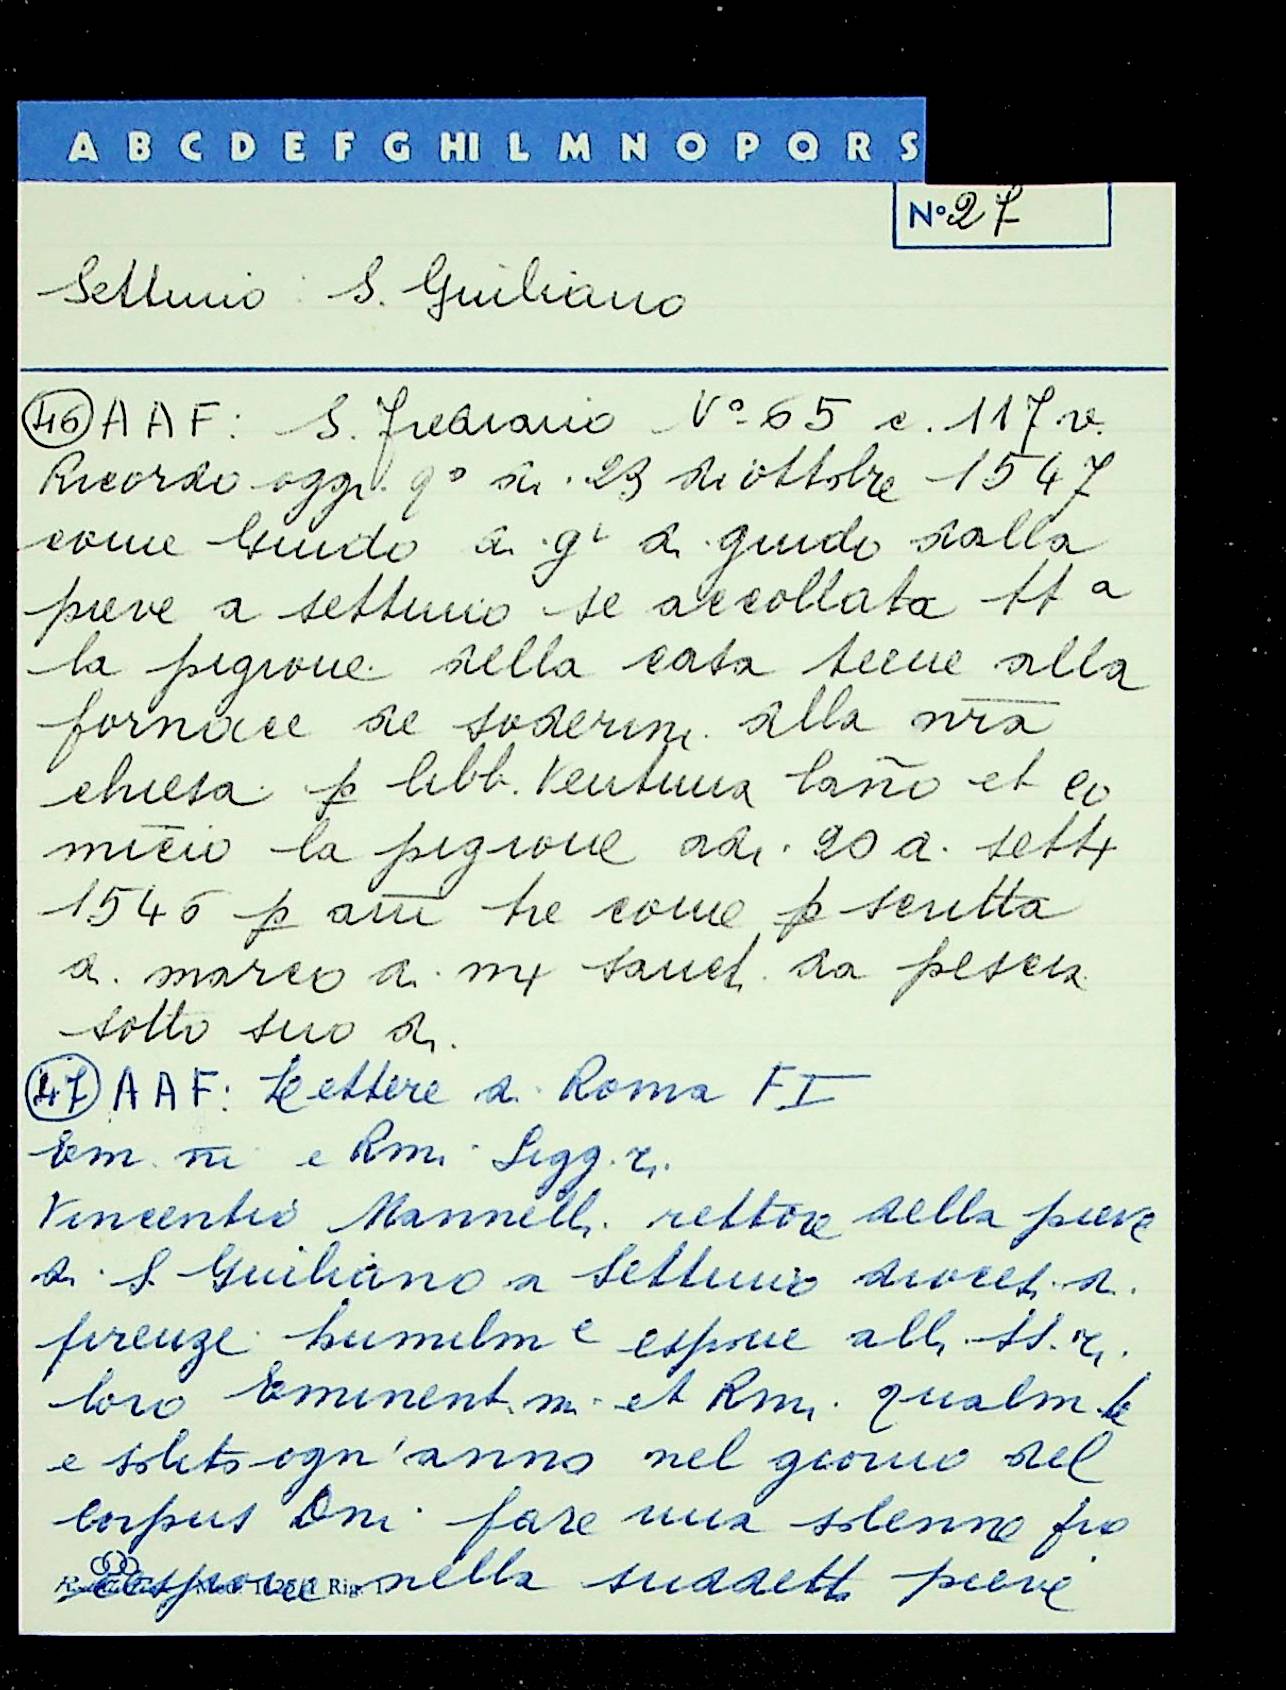 A B C D E F G HI L M N O P Q R S
N° 27
Settimo : S. Giuliano
46 AAF: S. Frediano N° 65 c. 117 v.
Ricordo oggi q° di. 23 di ottobre 1547
come Guido di gi di guido dalla
pieve a settimo se accollata tta
la pigione della casa tiene alla
fornace de soderini dalla nrã
chiesa p libb. Ventuna lañо et co
micio la pigione adi. 20 di sett
1546 p anni tre come p scritta
di marco di santi da pescia
sotto suo di.
47 AAF: Lettere di Roma F I
Em. mi e Rmi Sigg. ri.
Vincentio Mannelli rettore della pieve
di S Giuliano a Settimo dioces. di
firenze humilm e espone alli SS. ri.
loro Eminent. mi et Rmi. qualm te
e solito ogn'anno nel giorno del
Corpus Dni fare una solenne pro
cessione nella suddetta pieve